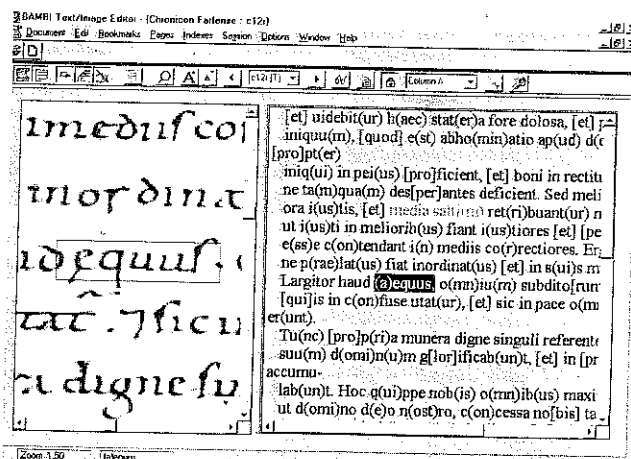 BAMBI Text/Image Editor - (Chronicon Farfense : c12r)
Document Edit Bookmarks Pages Indexes Session Options Window Help
Column A
imediis coi
inordinat
equus.
tat. ⁊ sic
digne su
[et] uidebit(ur) h(aec) stat(er)a fore dolosa, [et]
iniquu(m), [quod] e(st) abho(min)atio ap(ud) d(e
[pro]pt(er)
iniq(ui) in pei(us) [pro]ficient, [et] boni in rectitu
ne ta(m)qua(m) des[per]antes deficient. Sed meli
ora i(us)tis, [et] media saltimo ret(ri)buant(ur) n
ut i(us)ti in meliorib(us) fiant i(us)tiores [et] [pe
e(ss)e c(on)tendant i(n) mediis co(r)rectiores.
ne p(rae)lat(us) fiat inordinat(us) [et] in s(ui)s m
Largitor haud (a)equus, o(mn)iu(m) subdito[rum
[qui]is in c(on)fuse utat(ur), [et] sic in pace o(m
er(unt).
Tu(nc) [pro]p(ri)a munera digne singuli referente
suu(m) d(omi)n(u)m g[lor]ificab(un)t, [et] in [pr
accumu-
lab(un)t. Hoc q(ui)ppe nob(is) o(mn)ib(us) maxi
ut d(omi)no d(e)o n(ost)ro, c(on)cessa no[bis] ta
Zoom 1.50